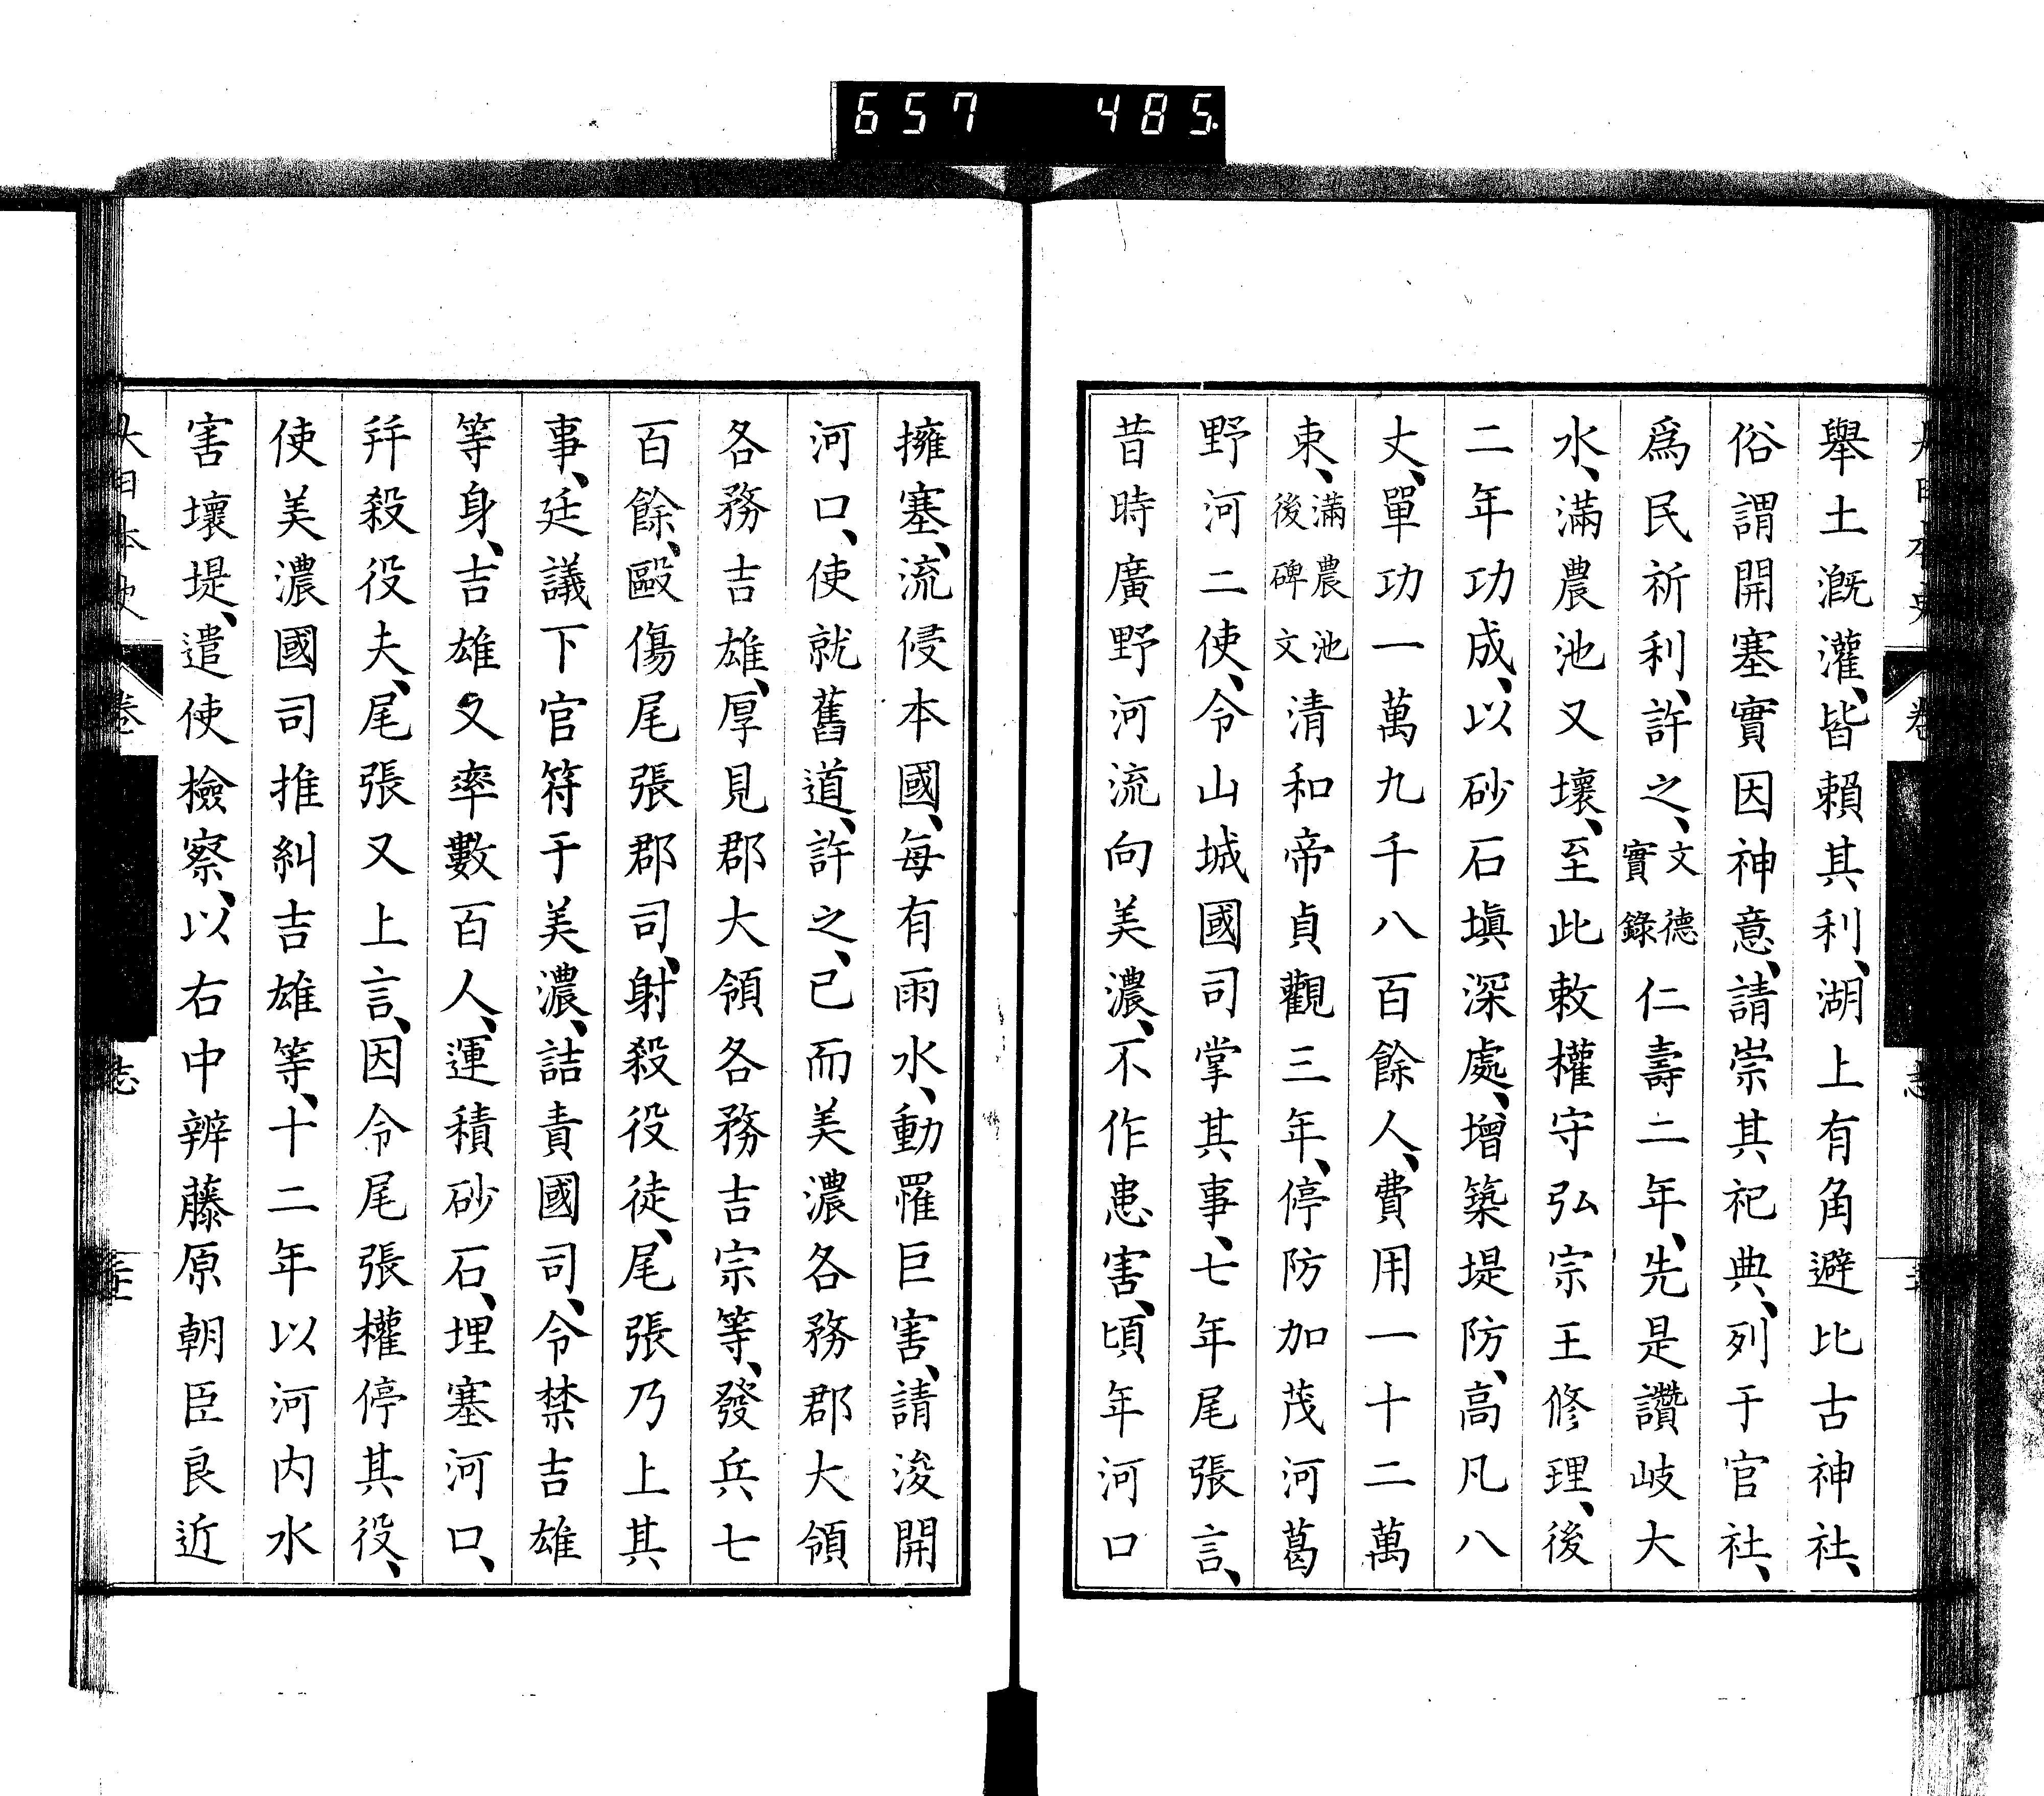 657 485
舉土漑灌、皆賴其利、湖上有角避比古神社、
俗謂開塞實因神意、請崇其祀典、列于官社、
爲民祈利、許之、文德實錄仁壽二年、先是讚岐大
水、滿農池又壞、至此敕權守弘宗王修理、後
二年功成、以砂石塡深處、增築堤防、高凡八
丈、單功一萬九千八百餘人、費用一十二萬
束、滿農池後碑文清和帝貞觀三年、停防加茂河葛
野河二使、令山城國司掌其事、七年尾張言、
昔時廣野河流向美濃、不作患害、頃年河口
擁塞、流侵本國、每有雨水、動罹巨害、請浚開
河口、使就舊道、許之、已而美濃各務郡大領
各務吉雄、厚見郡大領各務吉宗等、發兵七
百餘、毆傷尾張郡司、射殺役徒、尾張乃上其
事、廷議下官符于美濃、詰責國司、令禁吉雄
等身、吉雄又率數百人、運積砂石、埋塞河口、
幷殺役夫、尾張又上言、因令尾張權停其役、
使美濃國司推糾吉雄等、十二年以河內水
害壞堤、遣使檢察、以右中辨藤原朝臣良近
大日本史 卷 志